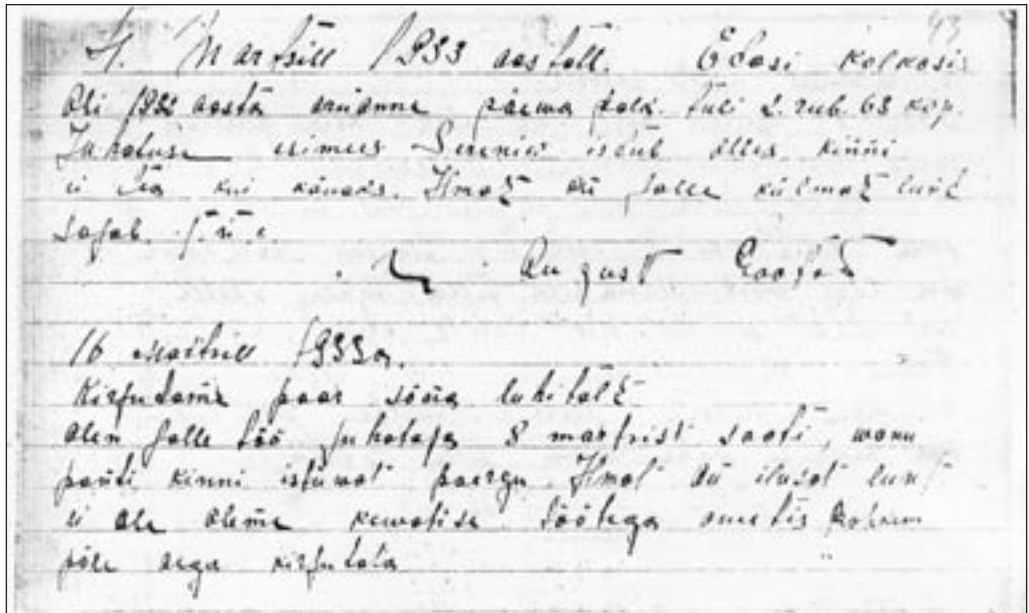 43
4. Martsill 1933 aastall. Edasi kolkosi
Oli 1932 aasta päewa tuli 2. rub. 63 kop.
Juhatuse esimees istub alles kinni
ei tea kui kauaks. Ilmat on jälle külmat lunt
sajab. j.n.e.
August
16 Martsill 1933a.
Kirjutame paar sõna luhitalt
olen jälle töö juhataja 8 martsist saati, wanu
panti kinni istuwat praegu. Ilmat on ilusat lunt
ei ole oleme kewatise töötega ametis
pole aega kirjutata